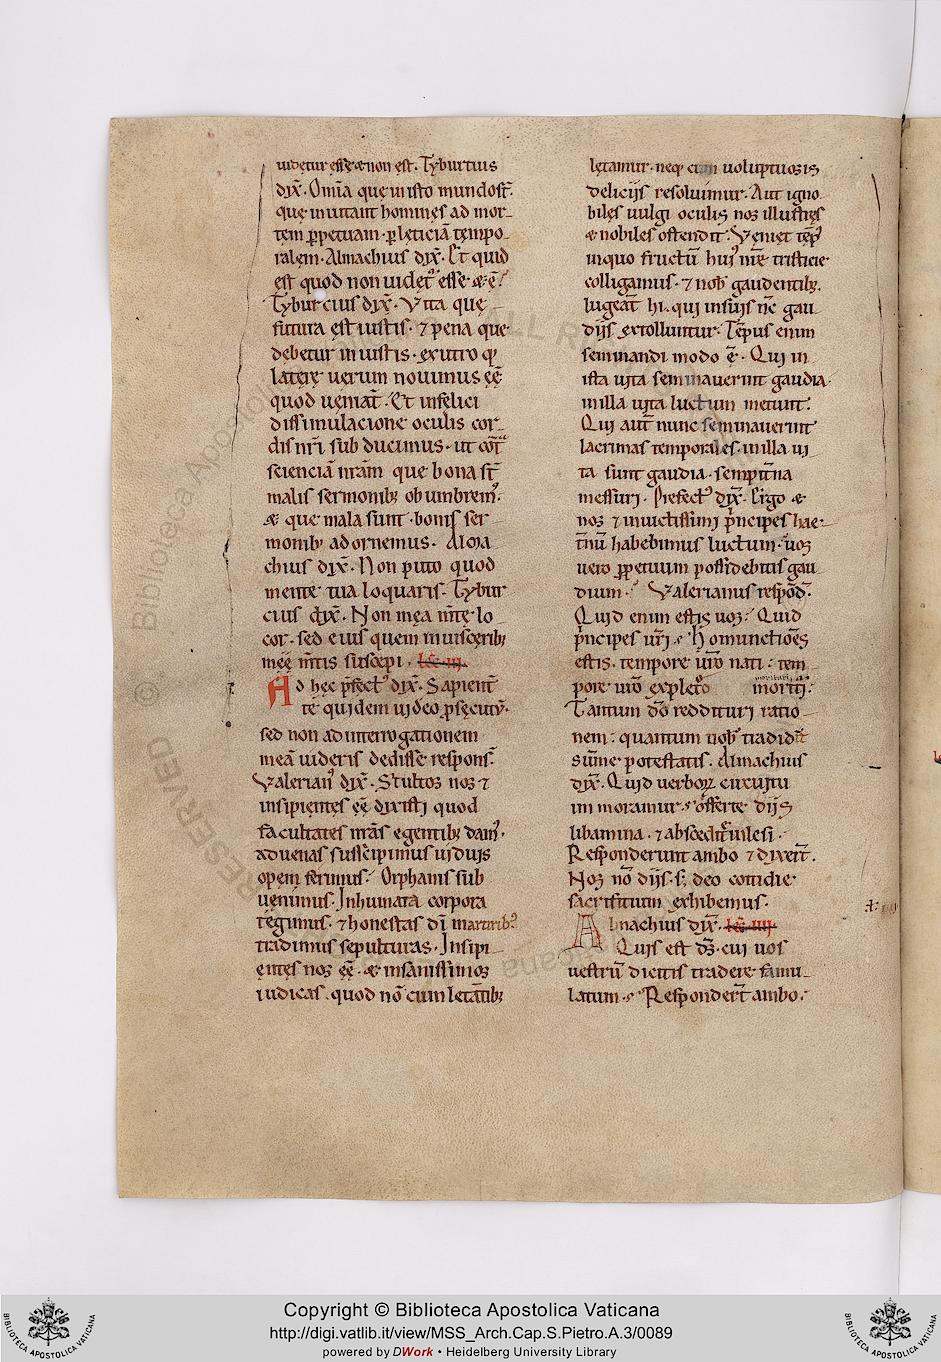 uidetur esse & non est. Tyburtius
dix̄. Om̄ia quę in isto mundo st̄.
quę inuitant homines ad mor-
tem ꝑpetuam. ꝑ lęticiā tempo-
ralem. Almachius dix̄. Et quid
est quod non uidet᷒ esse & ē?
Tyburcius dix̄. Vita quę
futura est iustis. ⁊ pena que
debetur iniustis. ex utro q᷒
latere uerum nouimus eē
quod ueniat. Et infelici
dissimulacione oculis cor-
dis nr̄i sub ducimus. ut cōt̄ᵃ
scienciā nr̄am que bona st̄
malis sermonibꝫ obumbrem᷒.
& que mala sunt. bonis ser
monibꝫ adornemus. Alma
chius dix̄. Non puto quod
mente tua loquaris. Tybur
cius dix̄. Non mea m̄te lo
cor. sed eius quem in uisceribꝫ
meę m̄tis suscepi. lc̄. iii.
Ad hęc p̄fect᷒ dix̄. Sapient̄
te quidem uideo ꝓsecut᷒.
sed non ad interrogationem
meā uideris dedisse respons̄.
Valerian᷒ dix̄. Stultos nos ⁊
insipientes eē dixisti quod
facultates nr̄as egentibꝫ dam᷒.
aduenas suscipimus uiduis
opem ferimus. Orphanis sub
uenimus. Inhumata corpora
tegimus. ⁊ honestas dī martiribꝫ
tradimus sepulturas. Insipi
entes nos eē. & insanissimos
iudicas. quod nō cum letātibꝫ
lętamur. neq cum uoluptuosis
deliciis resoluimur. Aut igno
biles uulgi oculis nos illustres
& nobiles ostendit. Veniet tēp᷒
in quo fructū hui᷒ nr̄e tristicie
colligamus. ⁊ nob̄ gaudentibꝫ.
lugeāt hi. qui in suis nc̄ gau
diis extolluntur. Tēpus enim
seminandi modo ē. Qui in
ista uita seminauerint gaudia.
in illa uita luctum metunt.
Qui aut̄ nunc seminauerint
lacrimas temporales. in illa ui
ta sunt gaudia. sempit̄na
messuri. Prefect᷒ dix̄. Ergo &
nos ⁊ inuictissimi p̄ncipes hae-
t̄nū habebimus luctum. uos
uero ꝑpetuum possidebitis gau
dium. Valerianus respōd̄.
Quid enim estis uos? Quid
p̄ncipes ur̄i? Homunctiōes
estis. tempore ur̄o nati: tem
pore ur̄o expleto morituri
mortui:
Tantum dō reddituri ratio
nem: quantum nob̄ tradidit
sūme potestatis. Almachius
dix̄. Quid uerboꝝ circuitu
immoramur? offerte diis
libamina. ⁊ abscedite illesi.
Responderunt ambo ⁊ dixer̄t.
Nos nō diis. s; deo cottidie
sacrifitium exhibemus.
Almachius dix̄. lc̄. iiii.
Quis est ds̄. cui uos
uestrū dicitis tradere famu
latum? Responder̄t ambo.
Copyright © Biblioteca Apostolica Vaticana
http://digi.vatlib.it/view/MSS_Arch.Cap.S.Pietro.A.3/0089
powered by DWork • Heidelberg University Library